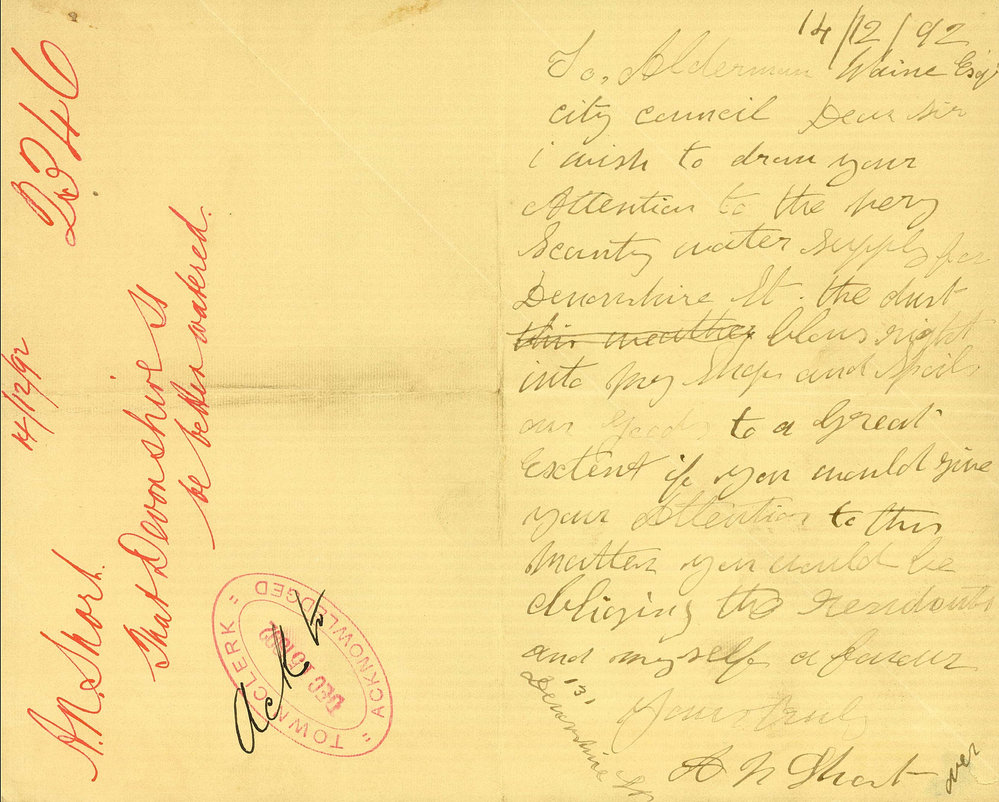 14/12/92
To, Alderman Waine Esq
city council Dear Sir
i wish to draw your
Attention to the very
Scanty water supply for
Devonshire St. the dust
this weather blows right
into my Shops and Spoils
our goods to a Great
extent if you would give
your Attention to this
Matter you would be
obliging the residents
and myself a favour
Yours truly
A N Short
131
Devonshire St
over
2346
14/12/92
A. N. Short.
That Devonshire St
be better watered.
"TOWN CLERK" ACKNOWLEDGED
DEC 15 1892
Ack